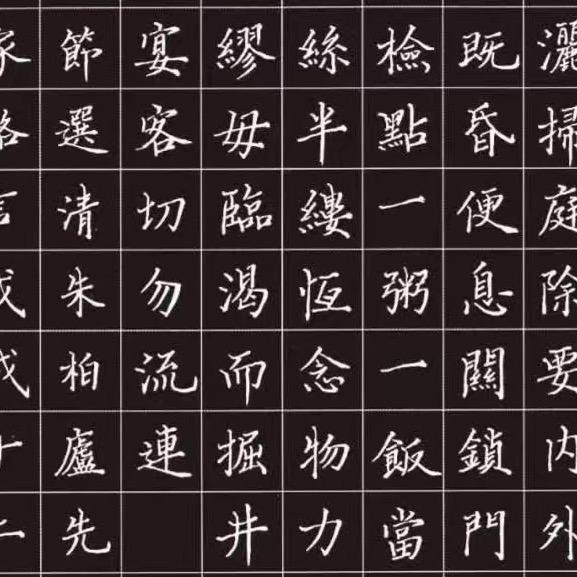 灑掃庭除要内外
既昏便息關鎖門
檢點一粥一飯當
絲半縷恆念物力
繆毋臨渴而掘井
宴客切勿流連
節選清朱柏廬先
家格言